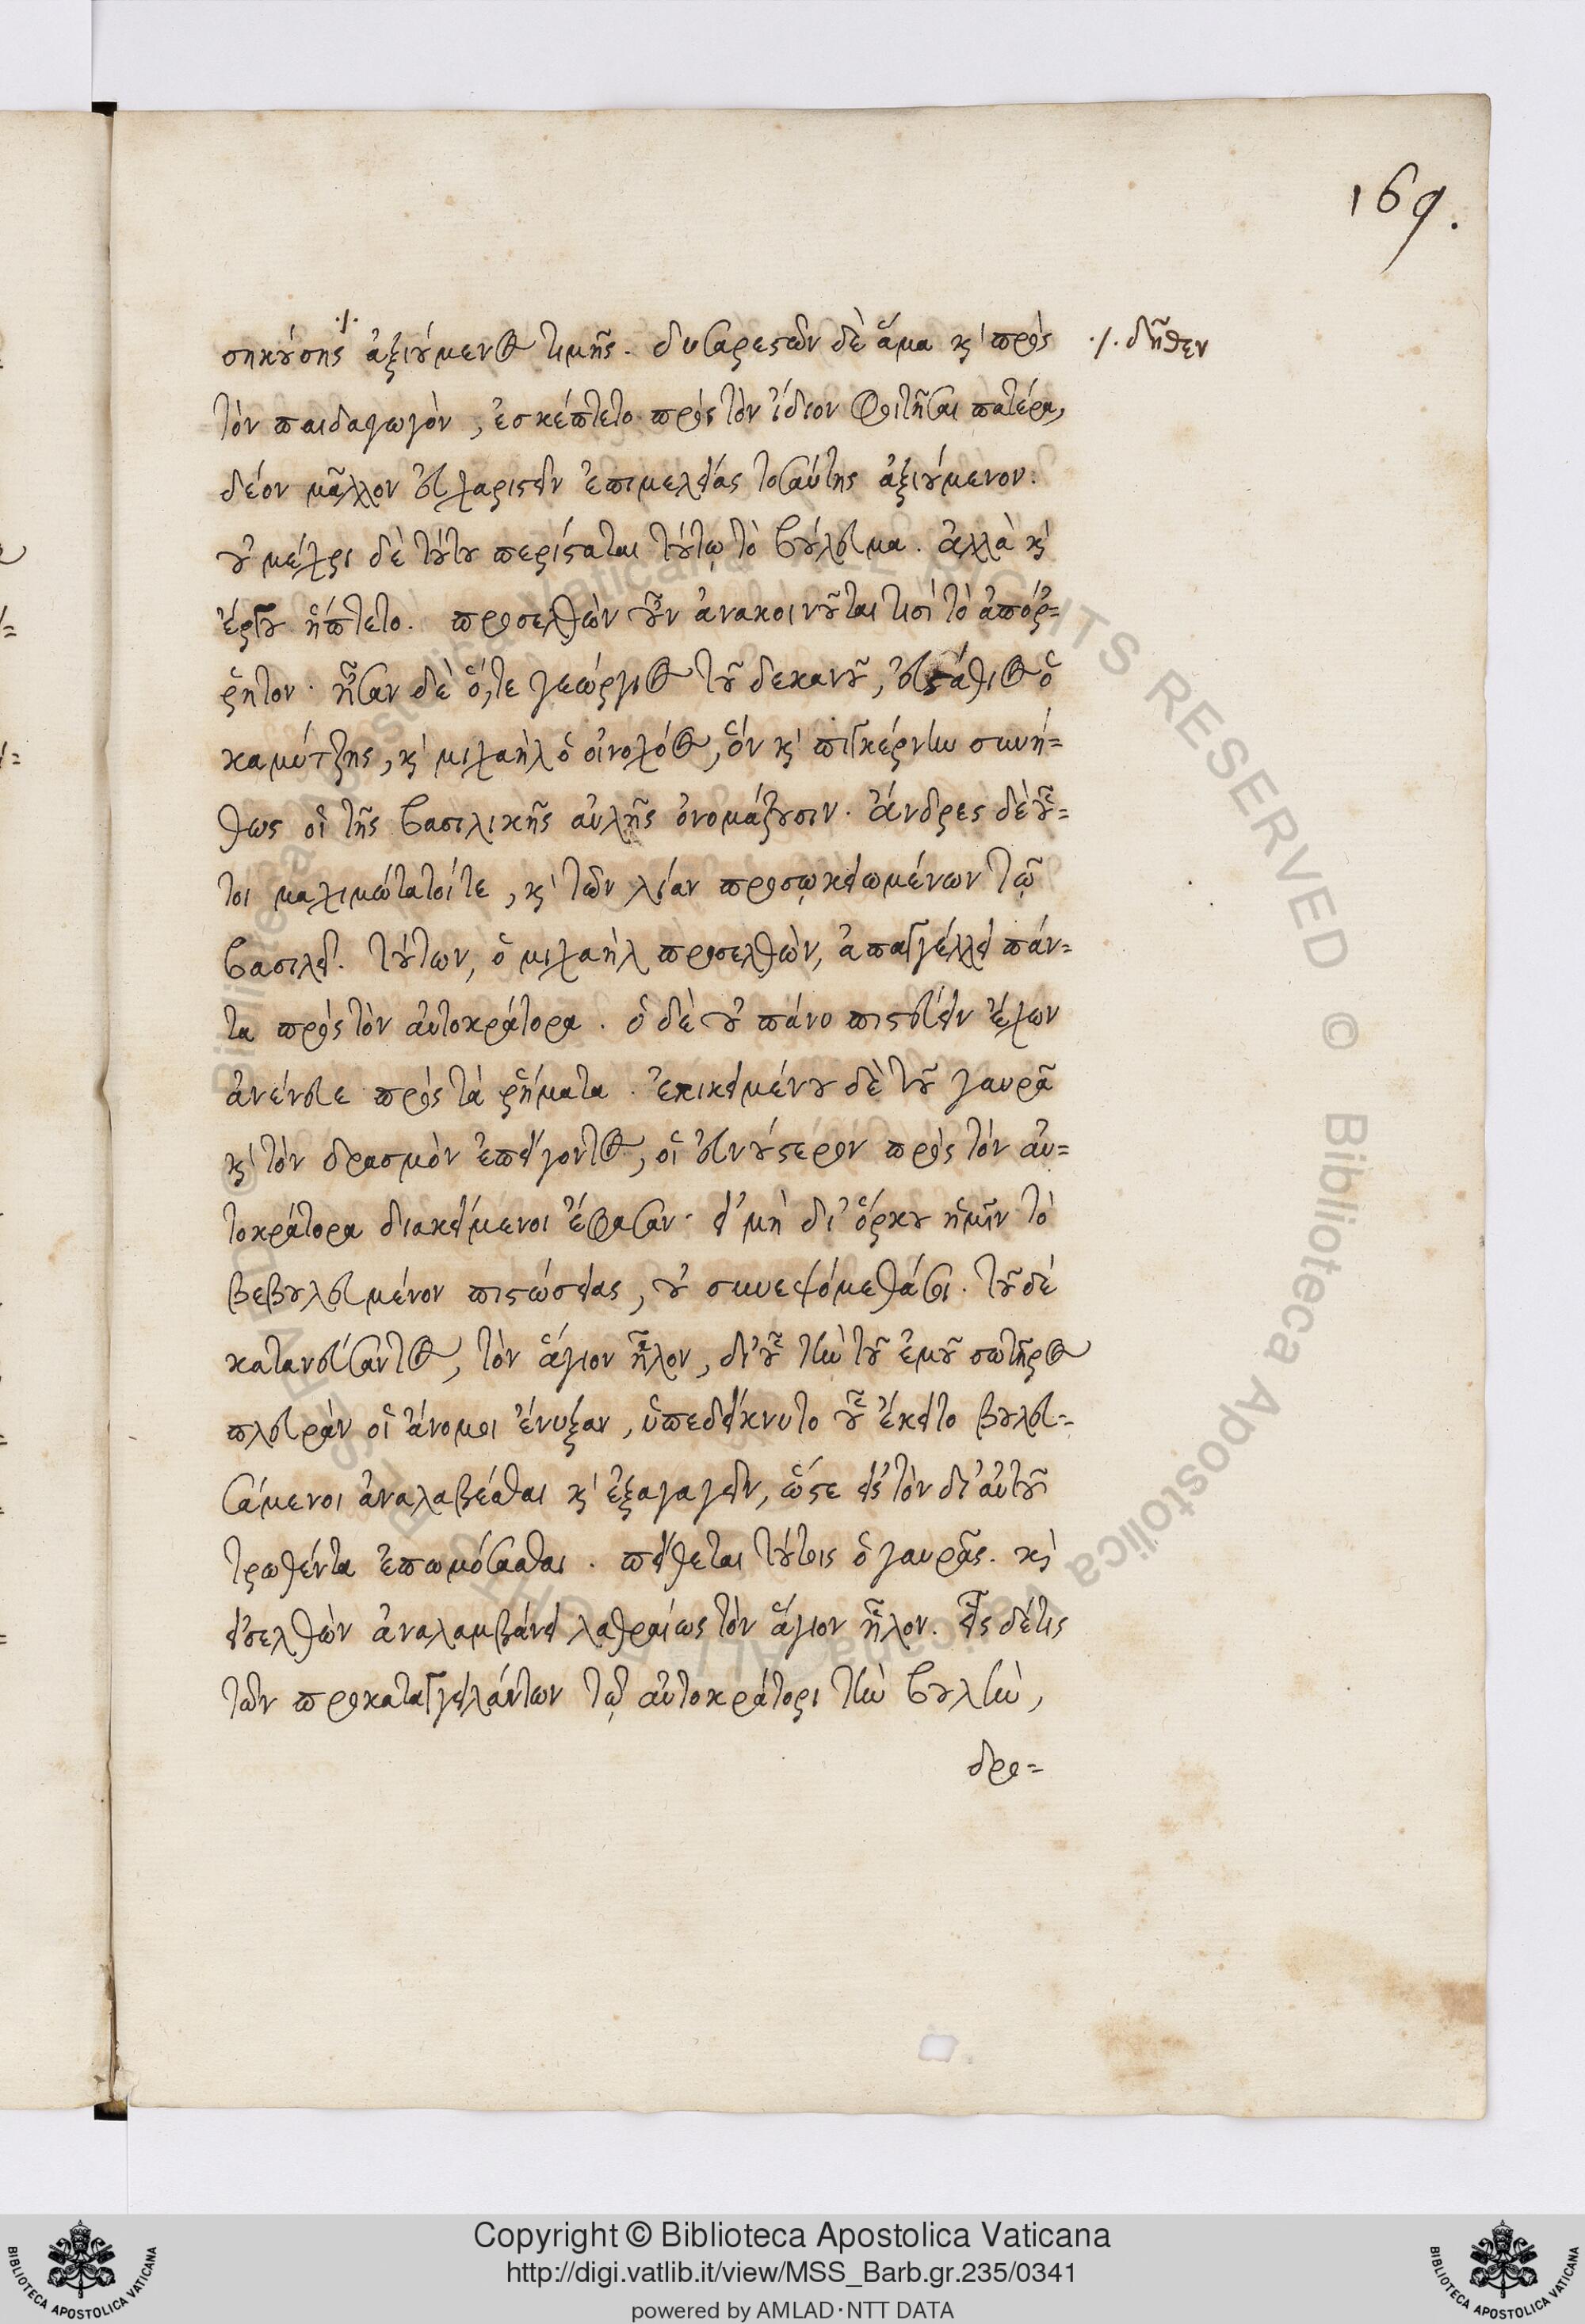 169.
σηκούσης ./. ἀξιούμενος τιμῆς. δυσαρεστῶν δὲ ἅμα καὶ πρὸς
./. δῆθεν
τὸν παιδαγωγὸν, ἐσκέπτετο πρὸς τὸν ἴδιον φοιτῆσαι πατέρα,
δέον μᾶλλον εὐχαριστεῖν ἐπιμελείας τοσαύτης ἀξιούμενον.
οὐ μέχρι δὲ τούτου περιίσταται τούτῳ τὸ βούλευμα. ἀλλὰ καὶ
ἔργου ἥπτετο. προσελθὼν οὖν ἀνακοινοῦται τισὶ τὸ ἀπόῤ=
ῥητον. ἦσαν δὲ ὅ,τε γεώργιος τοῦ δεκανοῦ, εὐστάθιος ὁ
καμύτζης, καὶ μιχαὴλ ὁ οἰνοχόος, ὅν καὶ πιγκέρνην συνή=
θως οἱ τῆς βασιλικῆς αὐλῆς ὀνομάζουσιν. ἄνδρες δὲ οὗ=
τοι μαχιμώτατοί τε, καὶ τῶν λίαν προσῳκειωμένων τῷ
βασιλεῖ. τούτων, ὁ μιχαὴλ προσελθὼν, ἀπαγγέλλει πάν=
τα πρὸς τὸν αὐτοκράτορα. ὁ δὲ οὐ πάνυ πιστεύειν ἔχων
ἀνένευε πρὸς τὰ ῥήματα. ἐπικειμένου δὲ τοῦ γαυρᾶ
καὶ τὸν δρασμὸν ἐπείγοντος, οἱ εὐνούστερον πρὸς τὸν αὐ=
τοκράτορα διακείμενοι ἔφασαν. εἰ μὴ δι' ὅρκου ἡμῖν τὸ
βεβουλευμένον πιστώσειας, οὐ συνεψόμεθά σοι. τοῦ δὲ
κατανεύσαντος, τὸν ἅγιον ἧλον, δι' οὗ τὴν τοῦ ἐμοῦ σωτῆρος
πλευρὰν οἱ ἄνομοι ἔνυξαν, ὑπεδείκνυτο οὗ ἔκειτο βουλευ=
σάμενοι ἀναλαβέσθαι καὶ ἐξαγαγεῖν, ὥστε εἰς τὸν δι' αὐτοῦ
τρωθέντα ἐπωμόσασθαι. πείθεται τούτοις ὁ γαυρᾶς. καὶ
εἰσελθὼν ἀναλαμβάνει λαθραίως τὸν ἅγιον ἧλον. εἷς δέ τις
τῶν προκαταγγειλάντων τῷ αὐτοκράτορι τὴν βουλὴν,
δρο=
Copyright © Biblioteca Apostolica Vaticana
http://digi.vatlib.it/view/MSS_Barb.gr.235/0341
powered by AMLAD·NTT DATA